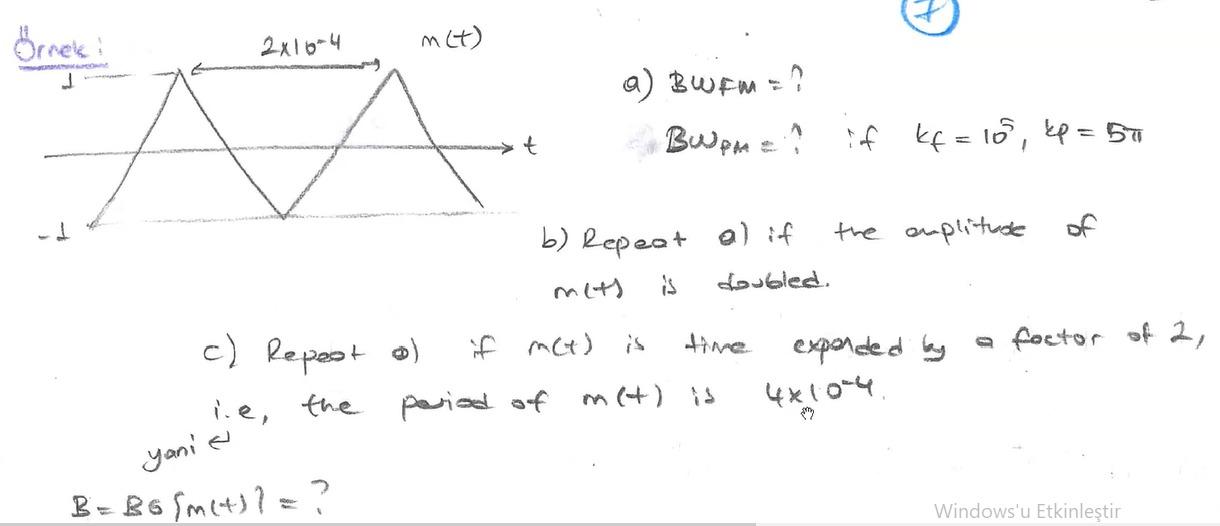 7
Örnek:
2x10-4
m(t)
1
t
-1
a) BWFM = ?
BWPM = ? if kf = 10⁵, kp = 5π
b) Repeat a) if the amplitude of
m(t) is doubled.
c) Repeat a) if m(t) is time expanded by a factor of 2,
i.e, the period of m(t) is 4x10-4.
yani ↵
B = BG {m(t)} = ?
Windows'u Etkinleştir